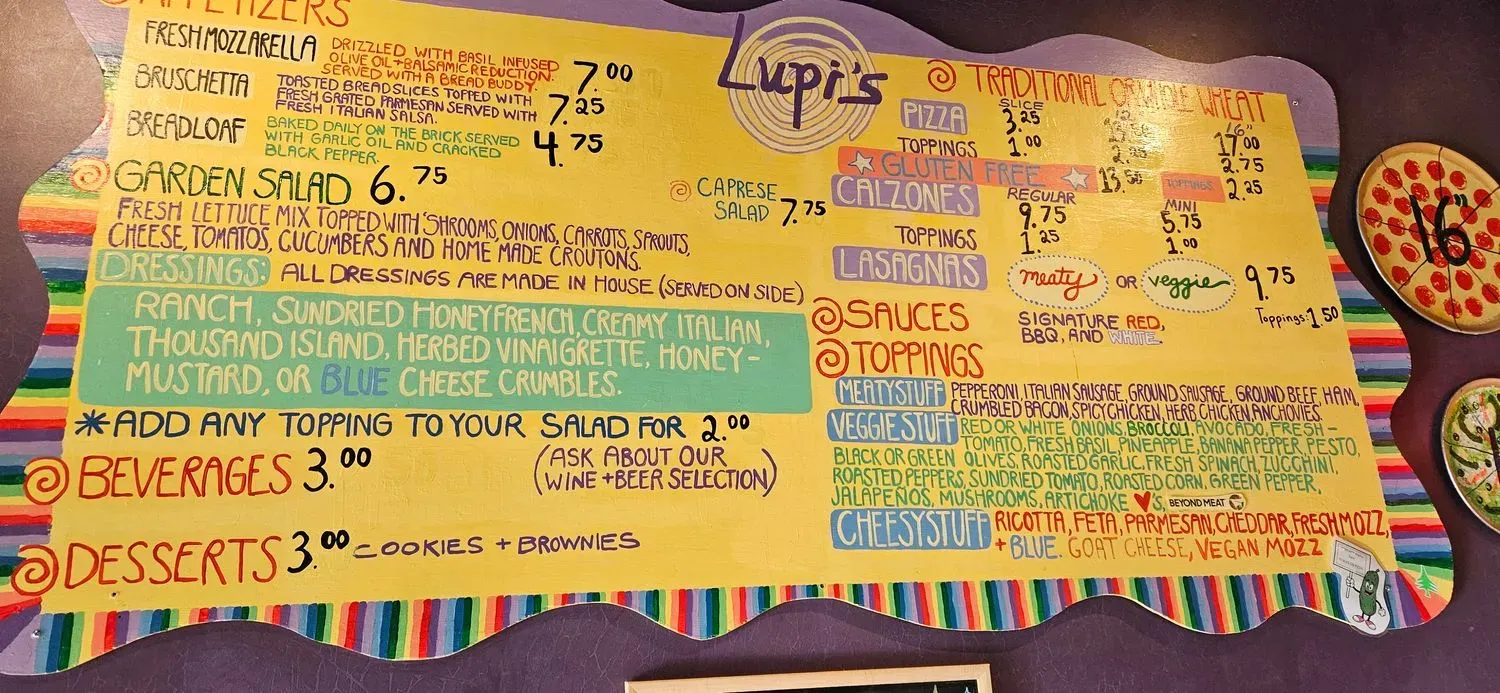 APPETIZERS
FRESH MOZZARELLA DRIZZLED WITH BASIL INFUSED
OLIVE OIL + BALSAMIC REDUCTION.
SERVED WITH A BREAD BUDDY. 7.00
BRUSCHETTA TOASTED BREAD SLICES TOPPED WITH
FRESH GRATED PARMESAN SERVED WITH
FRESH ITALIAN SALSA. 7.25
BREADLOAF BAKED DAILY ON THE BRICK SERVED
WITH GARLIC OIL AND CRACKED
BLACK PEPPER. 4.75
GARDEN SALAD 6.75
CAPRESE
SALAD 7.75
FRESH LETTUCE MIX TOPPED WITH 'SHROOMS, ONIONS, CARROTS, SPROUTS,
CHEESE, TOMATOS, CUCUMBERS AND HOME MADE CROUTONS.
DRESSINGS: ALL DRESSINGS ARE MADE IN HOUSE (SERVED ON SIDE)
RANCH, SUNDRIED HONEY FRENCH, CREAMY ITALIAN,
THOUSAND ISLAND, HERBED VINAIGRETTE, HONEY-
MUSTARD, OR BLUE CHEESE CRUMBLES.
*ADD ANY TOPPING TO YOUR SALAD FOR 2.00
BEVERAGES 3.00 (ASK ABOUT OUR
WINE + BEER SELECTION)
DESSERTS 3.00 COOKIES + BROWNIES
Lupi's
TRADITIONAL OR WHOLE WHEAT
SLICE 16"
PIZZA 3.25 17.00
TOPPINGS 1.00 2.25 2.75
GLUTEN FREE 13.50 TOPPINGS 2.25
REGULAR MINI
CALZONES 9.75 5.75
TOPPINGS 1.25 1.00
LASAGNAS meaty OR veggie 9.75
Toppings: 1.50
SAUCES SIGNATURE RED,
BBQ, AND WHITE.
TOPPINGS
MEATYSTUFF PEPPERONI, ITALIAN SAUSAGE, GROUND SAUSAGE, GROUND BEEF, HAM,
CRUMBLED BACON, SPICY CHICKEN, HERB CHICKEN ANCHOVIES.
VEGGIESTUFF RED OR WHITE ONIONS, BROCCOLI, AVOCADO, FRESH-
TOMATO, FRESH BASIL, PINEAPPLE, BANANA PEPPER, PESTO,
BLACK OR GREEN OLIVES, ROASTED GARLIC, FRESH SPINACH, ZUCCHINI,
ROASTED PEPPERS, SUNDRIED TOMATO, ROASTED CORN, GREEN PEPPER,
JALAPEÑOS, MUSHROOMS, ARTICHOKE ♥'S, BEYOND MEAT
CHEESYSTUFF RICOTTA, FETA, PARMESAN, CHEDDAR, FRESH MOZZ,
+ BLUE. GOAT CHEESE, VEGAN MOZZ
16"